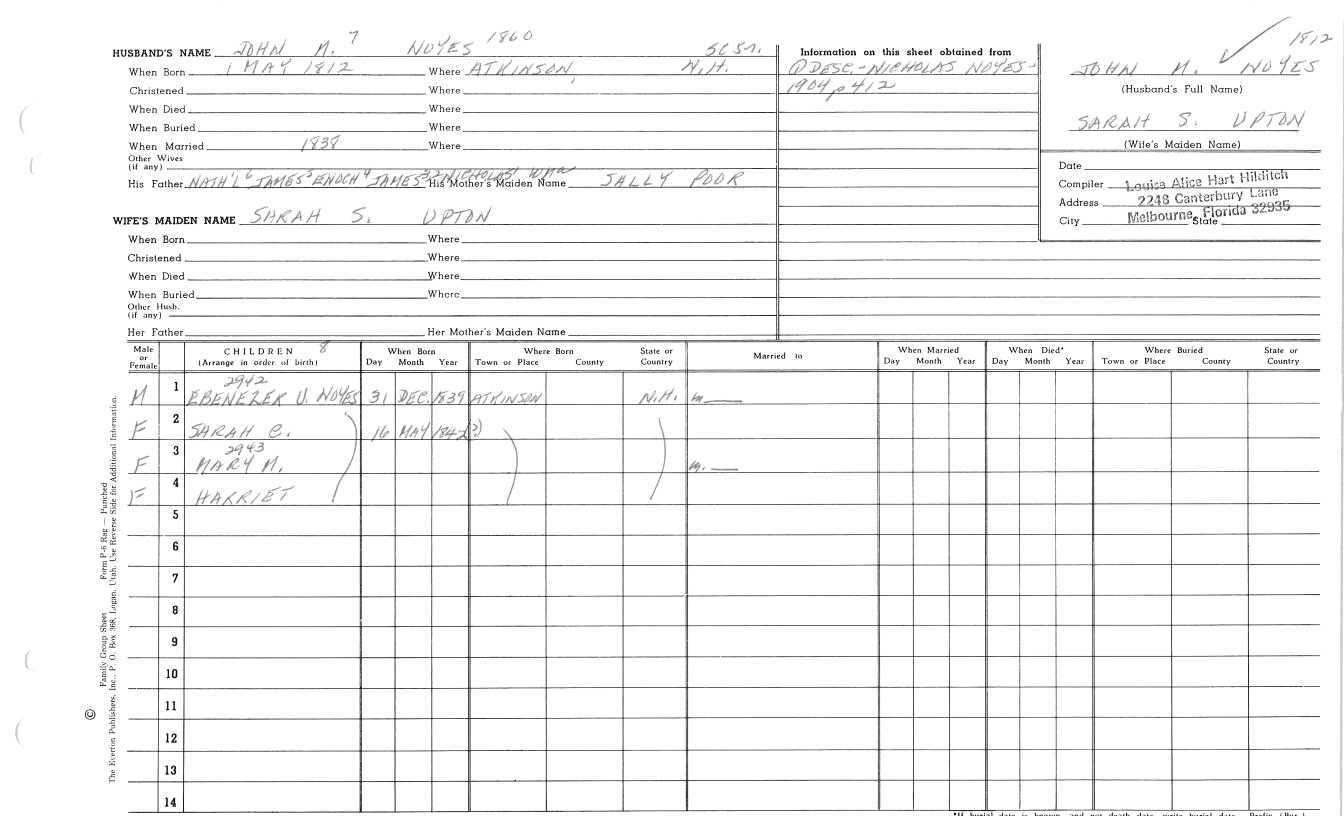 1812
HUSBAND'S NAME JOHN M. 7 NOYES 1860
When Born 1 MAY 1812 Where ATKINSON, N.H.
Christened Where
When Died Where
When Buried Where
When Married 1838 Where
Other Wives
(if any)
His Father NATH'L 6 JAMES 5 ENOCH 4 JAMES 3 2 NICHOLAS, WM His Mother's Maiden Name SALLY POOR
WIFE'S MAIDEN NAME SARAH S. UPTON
When Born Where
Christened Where
When Died Where
When Buried Where
Other Husb.
(if any)
Her Father Her Mother's Maiden Name
Information on this sheet obtained from
① DESC.-NICHOLAS NOYES-
1904 p 412
JOHN M. NOYES
(Husband's Full Name)
SARAH S. UPTON
(Wife's Maiden Name)
Date
Compiler Louise Alice Hart Hilditch
Address 2248 Canterbury Lane
City Melbourne, Florida 32935 State
Male or Female CHILDREN 8 (Arrange in order of birth) When Born Day Month Year Where Born Town or Place County State or Country Married to When Married Day Month Year When Died* Day Month Year Where Buried Town or Place County State or Country
2942
M 1 EBENEZER U. NOYES 31 DEC. 1839 ATKINSON N.H. m
F 2 SARAH C. 16 MAY 184 (?)
2943
F 3 MARY M. m.
F 4 HARRIET
5
6
7
8
9
10
11
12
13
14
Family Group Sheet Form P-6 Rag — Punched
© The Everton Publishers, Inc., P. O. Box 368, Logan, Utah. Use Reverse Side for Additional Information.
*If burial date is known, and not death date, write burial date